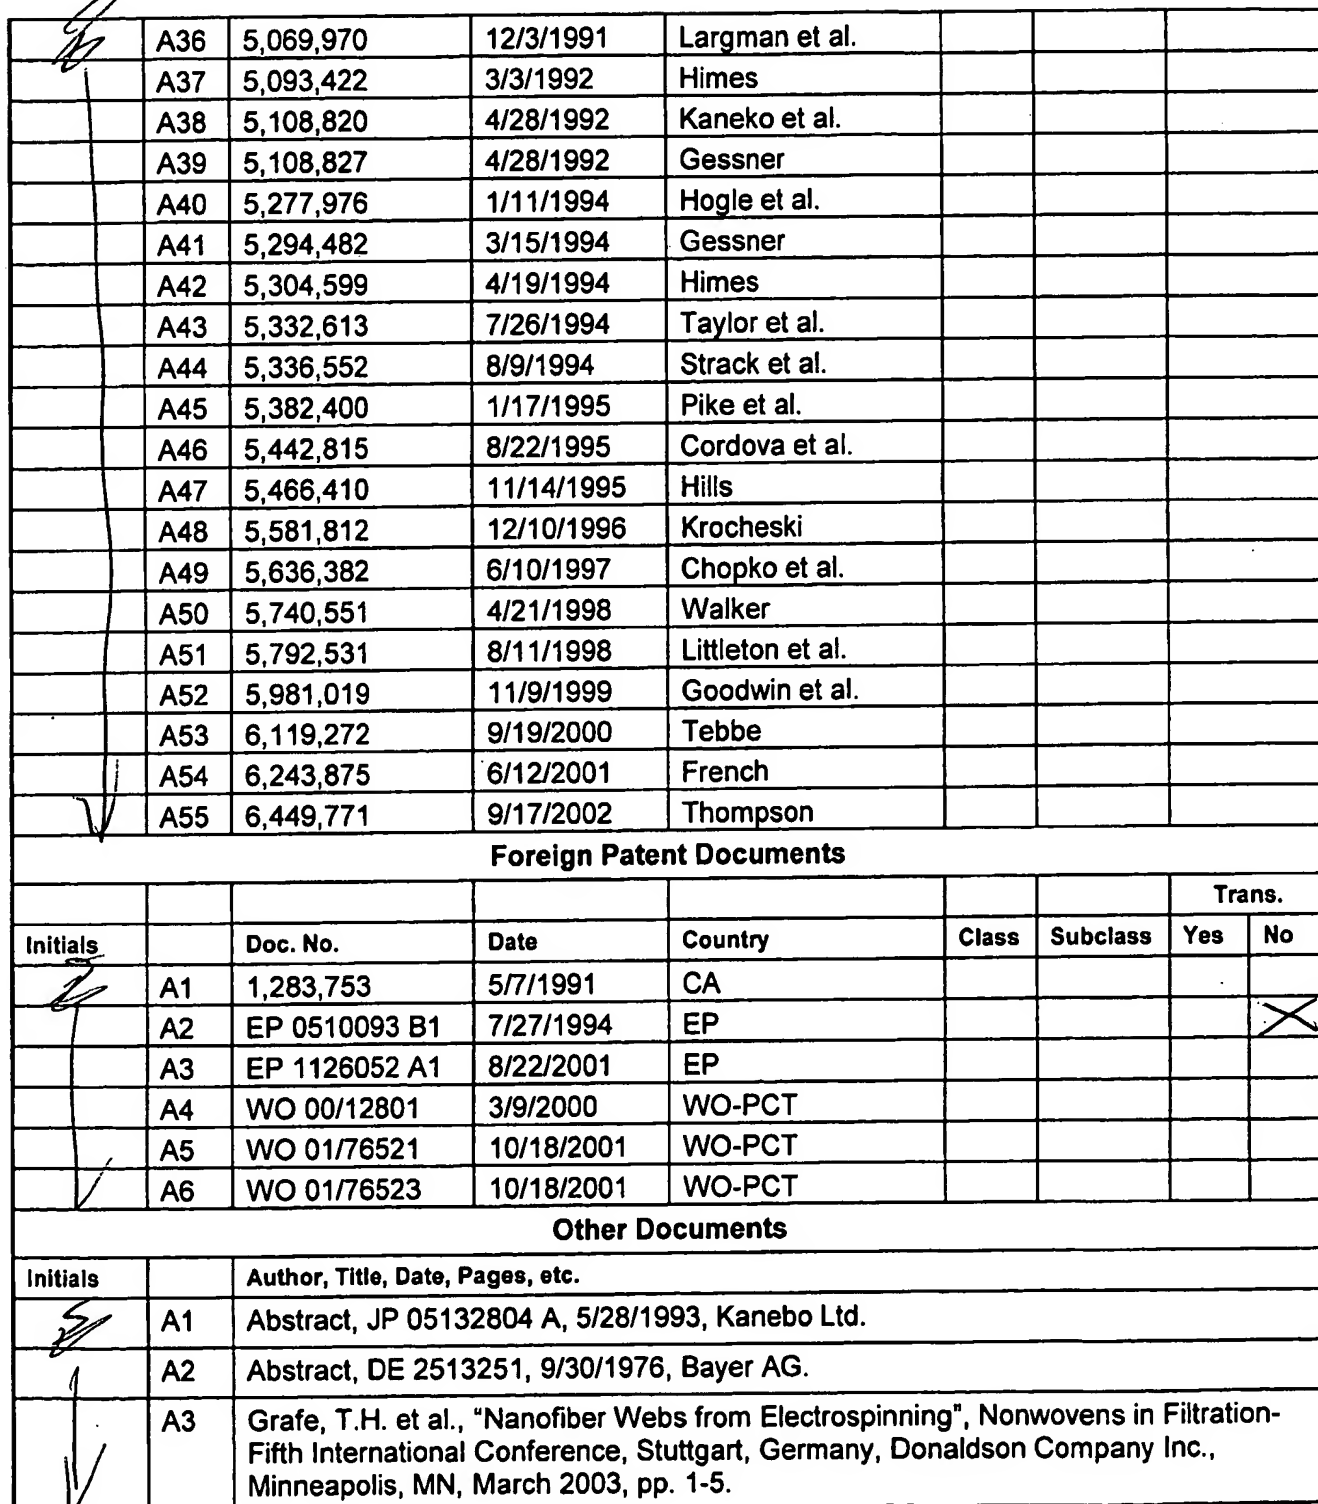 A36 5,069,970 12/3/1991 Largman et al.
A37 5,093,422 3/3/1992 Himes
A38 5,108,820 4/28/1992 Kaneko et al.
A39 5,108,827 4/28/1992 Gessner
A40 5,277,976 1/11/1994 Hogle et al.
A41 5,294,482 3/15/1994 Gessner
A42 5,304,599 4/19/1994 Himes
A43 5,332,613 7/26/1994 Taylor et al.
A44 5,336,552 8/9/1994 Strack et al.
A45 5,382,400 1/17/1995 Pike et al.
A46 5,442,815 8/22/1995 Cordova et al.
A47 5,466,410 11/14/1995 Hills
A48 5,581,812 12/10/1996 Krocheski
A49 5,636,382 6/10/1997 Chopko et al.
A50 5,740,551 4/21/1998 Walker
A51 5,792,531 8/11/1998 Littleton et al.
A52 5,981,019 11/9/1999 Goodwin et al.
A53 6,119,272 9/19/2000 Tebbe
A54 6,243,875 6/12/2001 French
A55 6,449,771 9/17/2002 Thompson
Foreign Patent Documents
Trans.
Initials Doc. No. Date Country Class Subclass Yes No
A1 1,283,753 5/7/1991 CA
A2 EP 0510093 B1 7/27/1994 EP
A3 EP 1126052 A1 8/22/2001 EP
A4 WO 00/12801 3/9/2000 WO-PCT
A5 WO 01/76521 10/18/2001 WO-PCT
A6 WO 01/76523 10/18/2001 WO-PCT
Other Documents
Initials Author, Title, Date, Pages, etc.
A1 Abstract, JP 05132804 A, 5/28/1993, Kanebo Ltd.
A2 Abstract, DE 2513251, 9/30/1976, Bayer AG.
A3 Grafe, T.H. et al., "Nanofiber Webs from Electrospinning", Nonwovens in Filtration-
Fifth International Conference, Stuttgart, Germany, Donaldson Company Inc.,
Minneapolis, MN, March 2003, pp. 1-5.